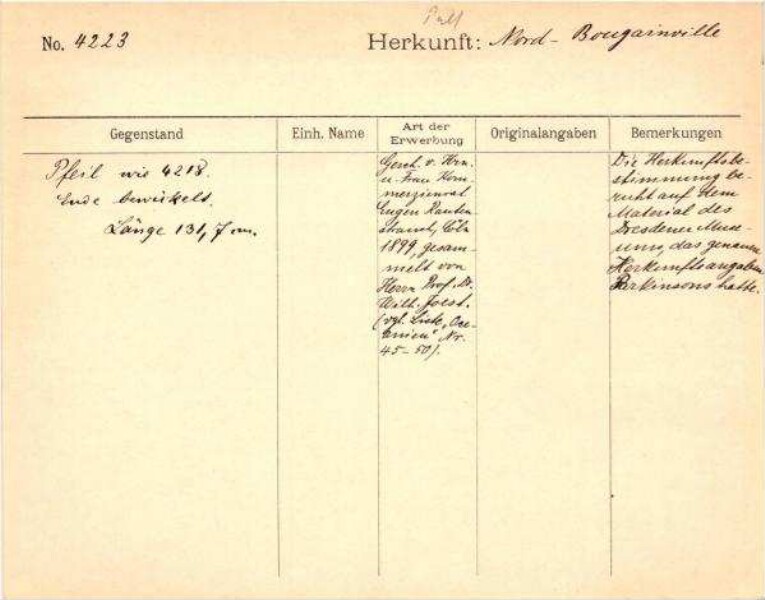 No. 4223
Herkunft: Nord- Bougainville
Gegenstand
Einh. Name
Art der
Erwerbung
Originalangaben
Bemerkungen
Pfeil wie 4218.
Ende bewickelt.
Länge 131,7 cm.
Gesch. v. Hrn.
u. Frau Kom-
merzienrat
Eugen Rauten-
strauch, Cöln
1899, gesam-
melt von
Herrn Prof. Dr.
Wilh. Joest.
(vgl. Liste „Oce-
anien" Nr.
45-50).
Die Herkunftsbe-
stimmung be-
ruht auf dem
Material des
Dresdener Muse-
ums, das genaue
Herkunftsangaben
Parkinsons hatte.